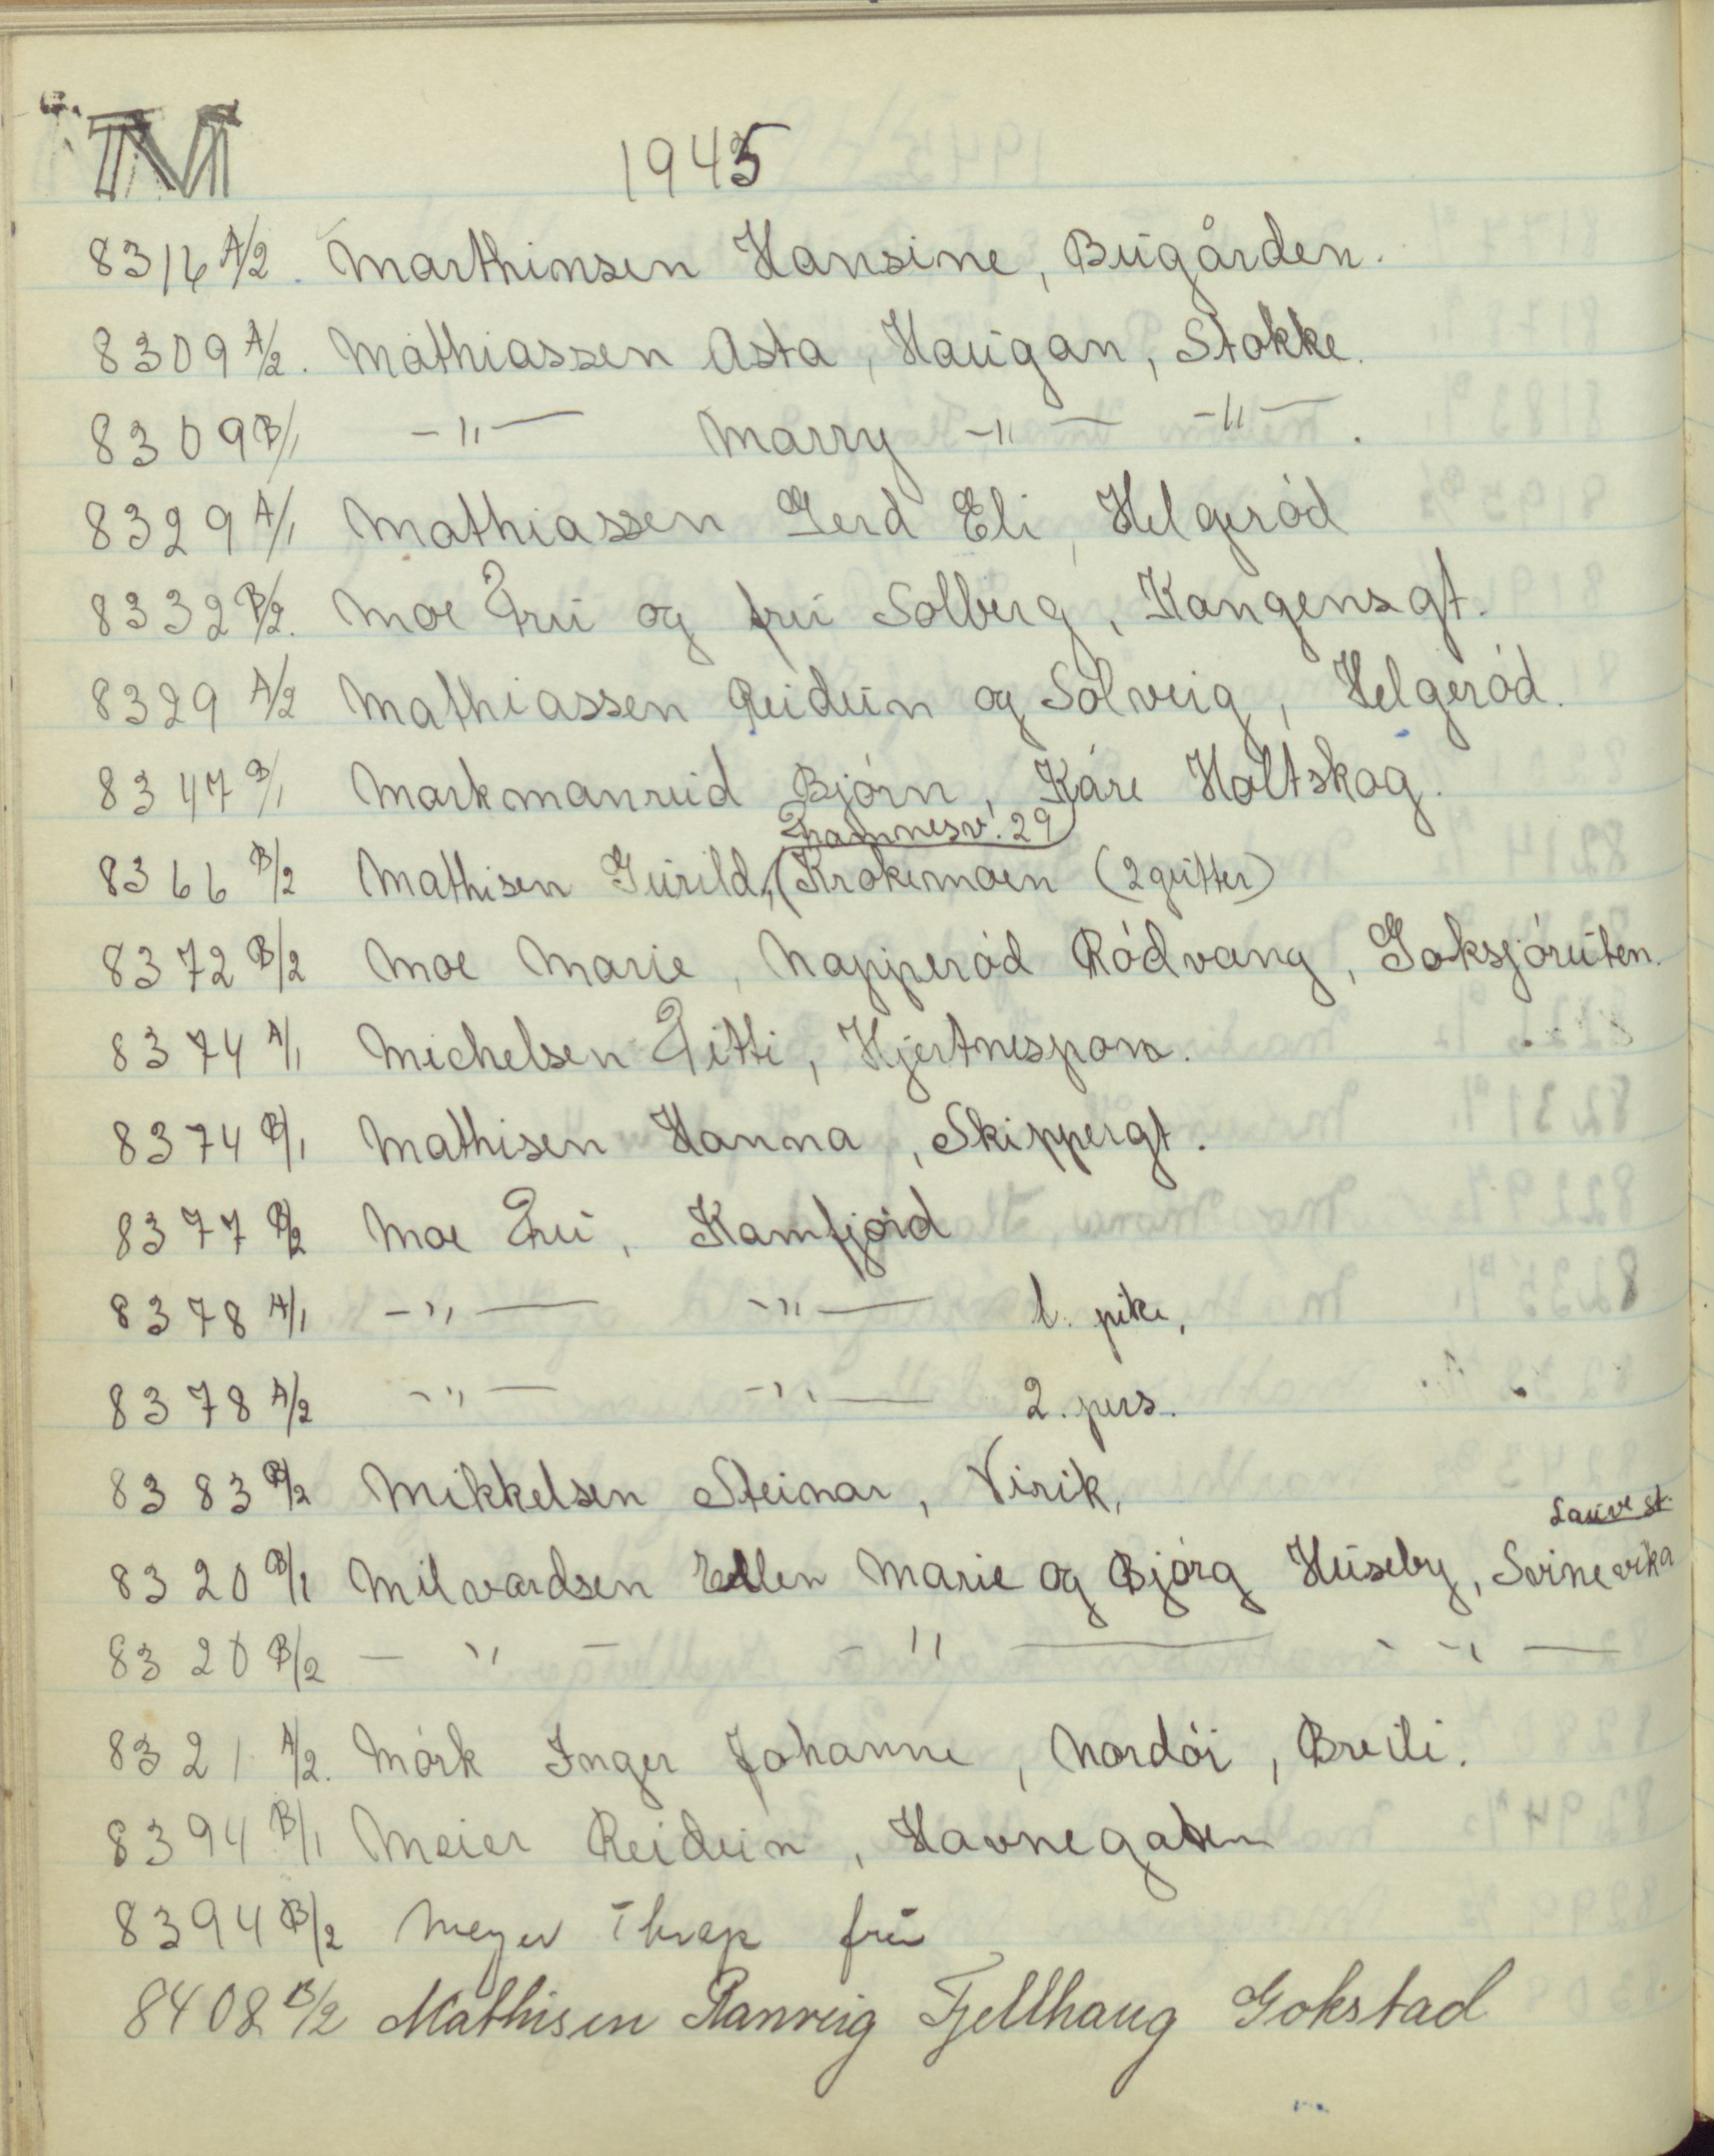 M 1945
8316 A/2. Marthinsen Hansine, Bugården.
8309 A/2. Mathiassen Asta, Haugan, Stokke.
8309 B/1 -"- Marry -"- -"-.
8329 A/1 Mathiassen Gerd Eli, Helgeród
8332 B/2. Moe Fru og fru Solberg, Kongensgt.
8329 A/2 Mathiassen Reidun og Solveig, Helgeród.
8347 B/1 Markmanrud Bjórn, Kåre Holtskog.
Framnesv. 29
8366 B/2 Mathisen Gurild, (Krokemoen (2 gutter)
8372 B/2 Moe Marie, Napperód Ródvang, Goksjóruten.
8374 A/1 Michelsen Fitti, Hjertnespom.
8374 B/1 Mathisen Hanna, Skippergt.
8377 B/2 Moe Fru, Kamfjord
8378 A/1 -"- -"- l. pike,
8378 A/2 -"- -"- 2. pers.
8383 B/2 Mikkelsen Steinar, Virik,
Lauve st.
8320 B/1 Milvardsen Ellen Marie og Bjórg Huseby, Svinevika
8320 B/2 - " - - " - - " -
8321 A/2. Mórk Inger Johanne, Nordói, Breili.
8394 B/1 Meier Reidun, Havnegaten
8394 B/2 Meyer Thrap fru
8408 B/2 Mathisen Ranveig Fjellhaug Gokstad